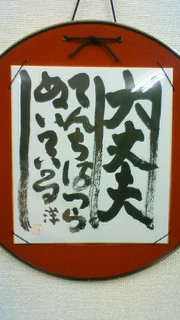 大丈夫
てんちはつら
ぬいている
洋